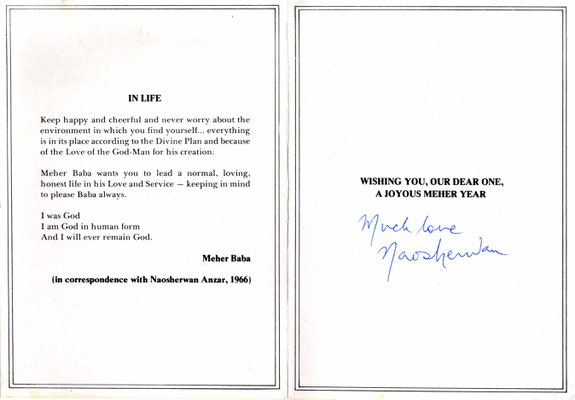 IN LIFE
Keep happy and cheerful and never worry about the
environment in which you find yourself... everything
is in its place according to the Divine Plan and because
of the Love of the God-Man for his creation.
Meher Baba wants you to lead a normal, loving,
honest life in his Love and Service — keeping in mind
to please Baba always.
I was God
I am God in human form
And I will ever remain God.
Meher Baba
(in correspondence with Naosherwan Anzar, 1966)
WISHING YOU, OUR DEAR ONE,
A JOYOUS MEHER YEAR
Much love
Naosherwan